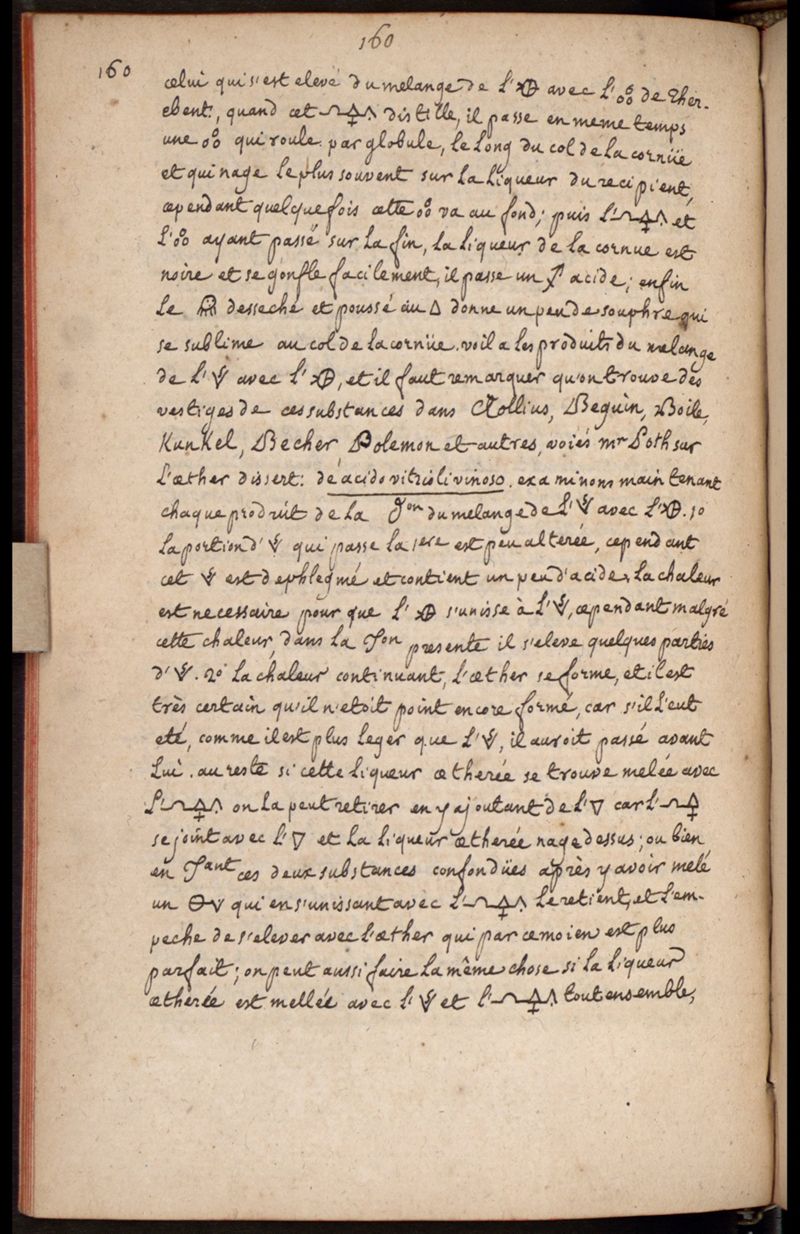 160
160
celui qui s'est elevé du melange de l' avec l'🝆 de ther-
ebent:, quand cet 🜍 distille, il passe en meme temps
une 🝆 qui roule par globule, le long du col de la cornüe
et qui nage le plus souvent sur la liqueur du recipient,
cependant quelquefois cette 🝆 va au fond; puis l' 🜍 et
l'🝆 ayant passé sur la fin, la liqueur de la cornue est
noire et se gonfle facilement, il passe un acide; enfin
le desseché et poussé au △ donne un peu de souphre qui
se sublime au col de la cornüe. voila les produits du melange
de l' avec l' , et il faut remarquer qu'on trouve des
vestiges de ces substances dans Crollius, Beguin, Boile,
Kunkel, Becher Polemon et autres, voiés mr Poth sur
l'æther dissert: de acido vitrioli vinoso. examinons maintenant
chaque produit de la on du melange de l' avec l' . 1o
la portion d' qui passe la 1ere est peu alterée, cependant
cet est dephlegmé et contient un peu d'acide, la chaleur
est necessaire pour que l' s'unisse à l' , cependant malgré
cette chaleur, dans la on presente il s'eleve quelques parties
d' . 2o la chaleur continuant, l'æther se forme, et il est
très certain qu'il n'etoit point encore formé, car s'il l'eut
eté, comme il est plus leger que l' , il auroit passé avant
lui. au reste si cette liqueur ætherée se trouve melée avec
l' 🜍 on la peut retirer en y ajoutant de l'▽ car l' 🜍
se joint avec l'▽ et la liqueur ætherée nage dessus; ou bien
en ant ces deux substances confondües après y avoir melé
un qui en s'unissant avec l' 🜍 le retient, et l'em-
peche de s'elever avec l'æther qui par ce moien est plus
parfait; on peut aussi faire la même chose si la liqueur
ætherée est mellée avec l' et l' 🜍 tout ensemble,